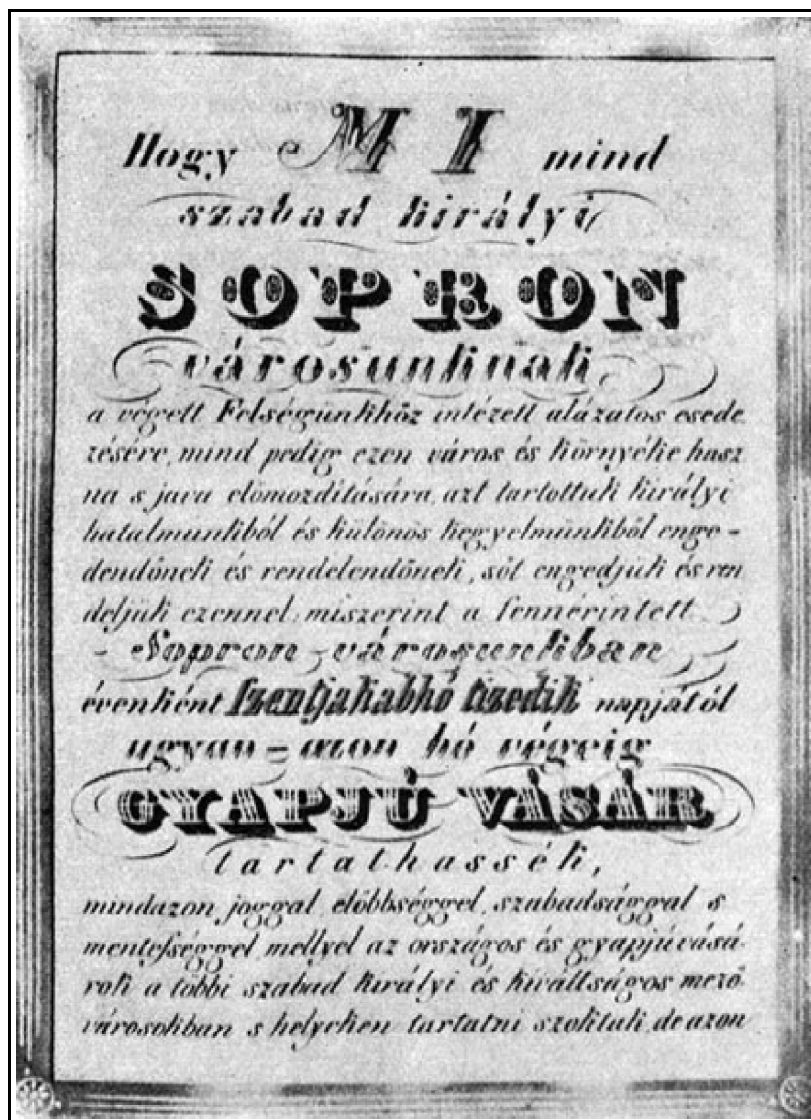 Hogy MI mind
szabad királyi
SOPRON
városunknak
a végett Felségünkhöz intézett alázatos esede
zésére, mind pedig ezen város és környéke hasz
na s java elömozdítására, azt tartottuk királyi
hatalmunkból és különös kegyelmünkből enge-
dendőnek és rendelendőnek, sőt engedjük és ren
deljük ezennel, miszerint a fennérintett
Sopron városunkban
évenként Szentjakabhó tizedik napjától
ugyan-azon hó végeig
GYAPJÚ VÁSÁR
tartathassék,
mindazon joggal, előbbséggel, szabadsággal s
mentességgel, mellyel az országos és gyapjúvásá-
rok a többi szabad királyi és kiváltságos mező
városokban s helyeken tartatni szoktak, de azon